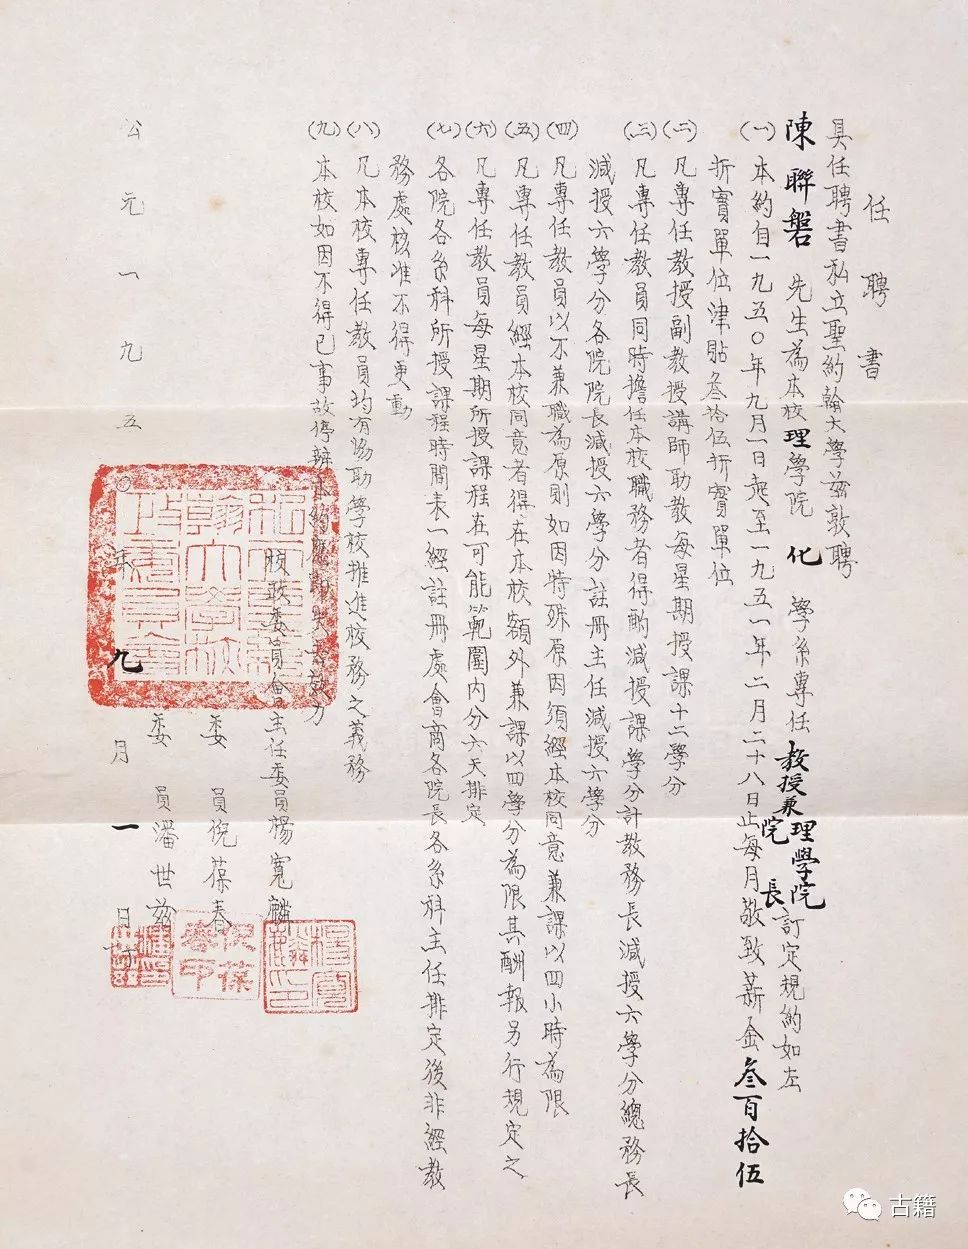 任聘書
具任聘書私立聖約翰大學茲敦聘
陳聯磐 先生為本校理學院 化 學系專任教授兼理學院院長訂定規約如左
(一)本約自一九五〇年九月一日起至一九五一年二月二十八日止每月敬致薪金叁百拾伍
折實單位津貼叁拾伍折實單位
(二)凡專任教授副教授講師助教每星期授課十二學分
(三)凡專任教員同時擔任本校職務者得酌減授課學分計教務長減授六學分總務長
減授六學分各院院長減授六學分註冊主任減授六學分
(四)凡專任教員以不兼職為原則如因特殊原因須經本校同意兼課以四小時為限
(五)凡專任教員經本校同意者得在本校額外兼課以四學分為限其酬報另行規定之
(六)凡專任教員每星期所授課程在可能範圍內分六天排定
(七)各院各系科所授課程時間表一經註冊處會商各院長各系科主任排定後非經教
務處核准不得更動
(八)凡本校專任教員均有協助學校推進校務之義務
(九)本校如因不得已事故停辦本約應即失去效力
校政委員會主任委員楊寬麟
委 員倪葆春
委 員潘世茲
公元一九五〇年九月一日訂
古籍